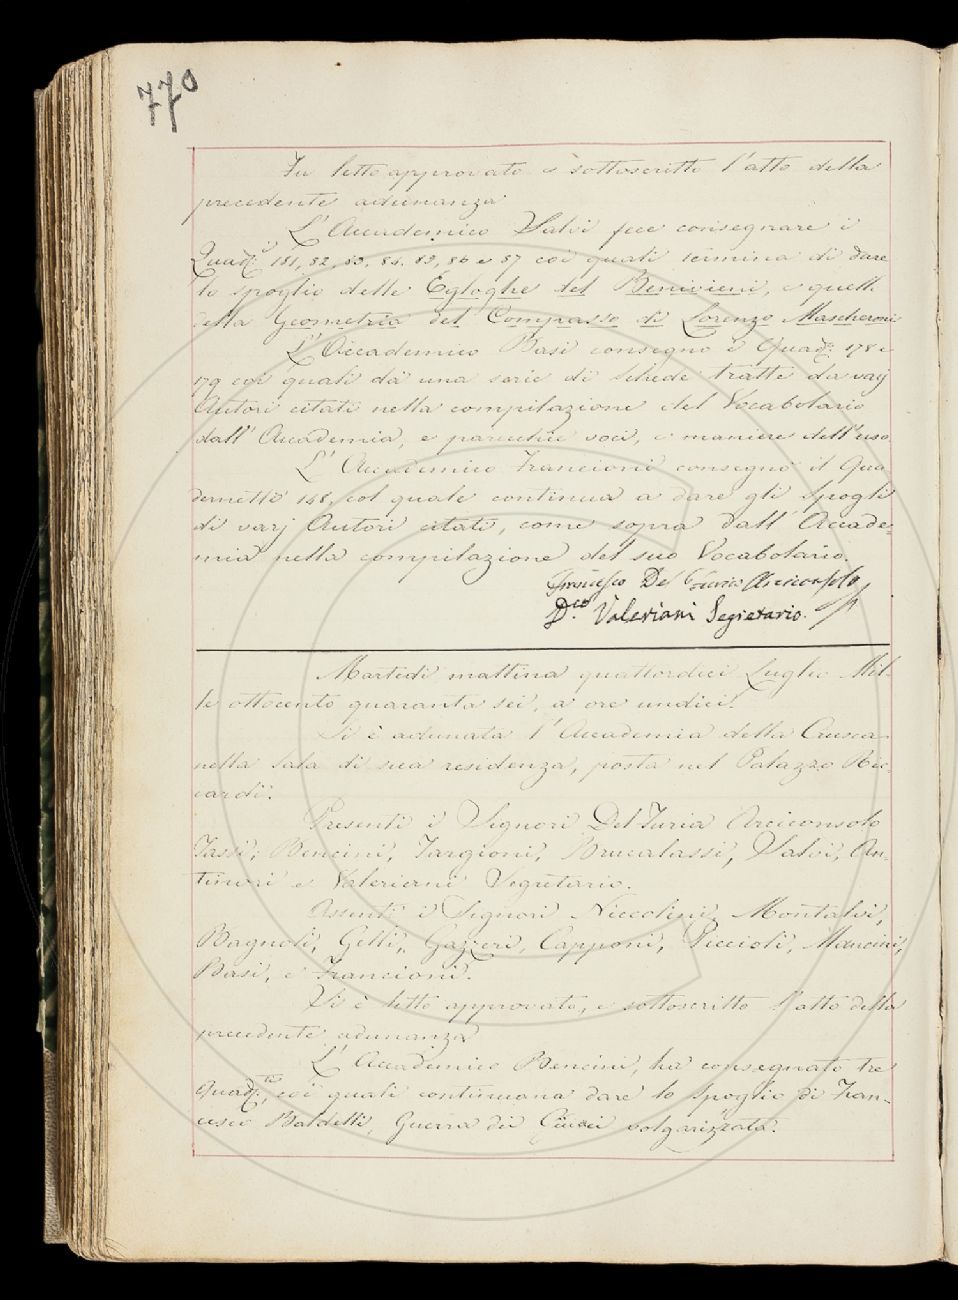 770
Fu letto approvato e sottoscritto l'atto della
precedente adunanza.
L'Accademico Salvi fece consegnare i
Quad.i 181, 82, 83, 84, 85, 86 e 87 coi quali termina di dare
lo spoglio delle Egloghe del Benivieni, e quell.
della Geometria del Compasso di Lorenzo Mascheroni
L'Accademico Basi consegnò i Quad. 178 e
179 coi quali dà una serie di schede tratte da varj
Autori citati nella compilazione del Vocabolario
dall'Accademia, e parecchie voci, e maniere dell'uso
L'Accademico Francioni consegnò il Qua
dernetto 148, col quale continua a dare gli Spogli
di varj Autori citati, come sopra dall'Accade=
mia nella compilazione del suo Vocabolario.
Francesco Del Furia Arciconsolo
D.co Valeriani Segretario.
Martedì mattina quattordici Luglio Mil-
le ottocento quaranta sei, a ore undici.
Si è adunata l'Accademia della Crusca
nella Sala di sua residenza, posta nel Palazzo Ric-
cardi.
Presenti i Signori Del Furia Arciconsolo
Tassi, Bencini, Targioni, Brucalassi, Salvi, An-
tinori e Valeriani Segretario.
Assenti i Signori Niccolini, Montalvi,
Bagnoli, Gelli, Gazzeri, Capponi, Piccioli, Mancini,
Basi, e Francioni.
Si è letto approvato, e sottoscritto l'atto della
precedente adunanza
L'Accademico Bencini, ha consegnato tre
Quad.ti coi quali continua a dare lo Spoglio di Fran-
cesco Baldelli, Guerra di Giudei volgarizzata.